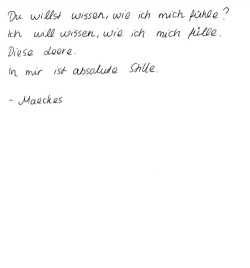 Du willst wissen, wie ich mich fühle?
Ich will wissen, wie ich mich fülle.
Diese Leere.
In mir ist absolute Stille.
- Maeckes